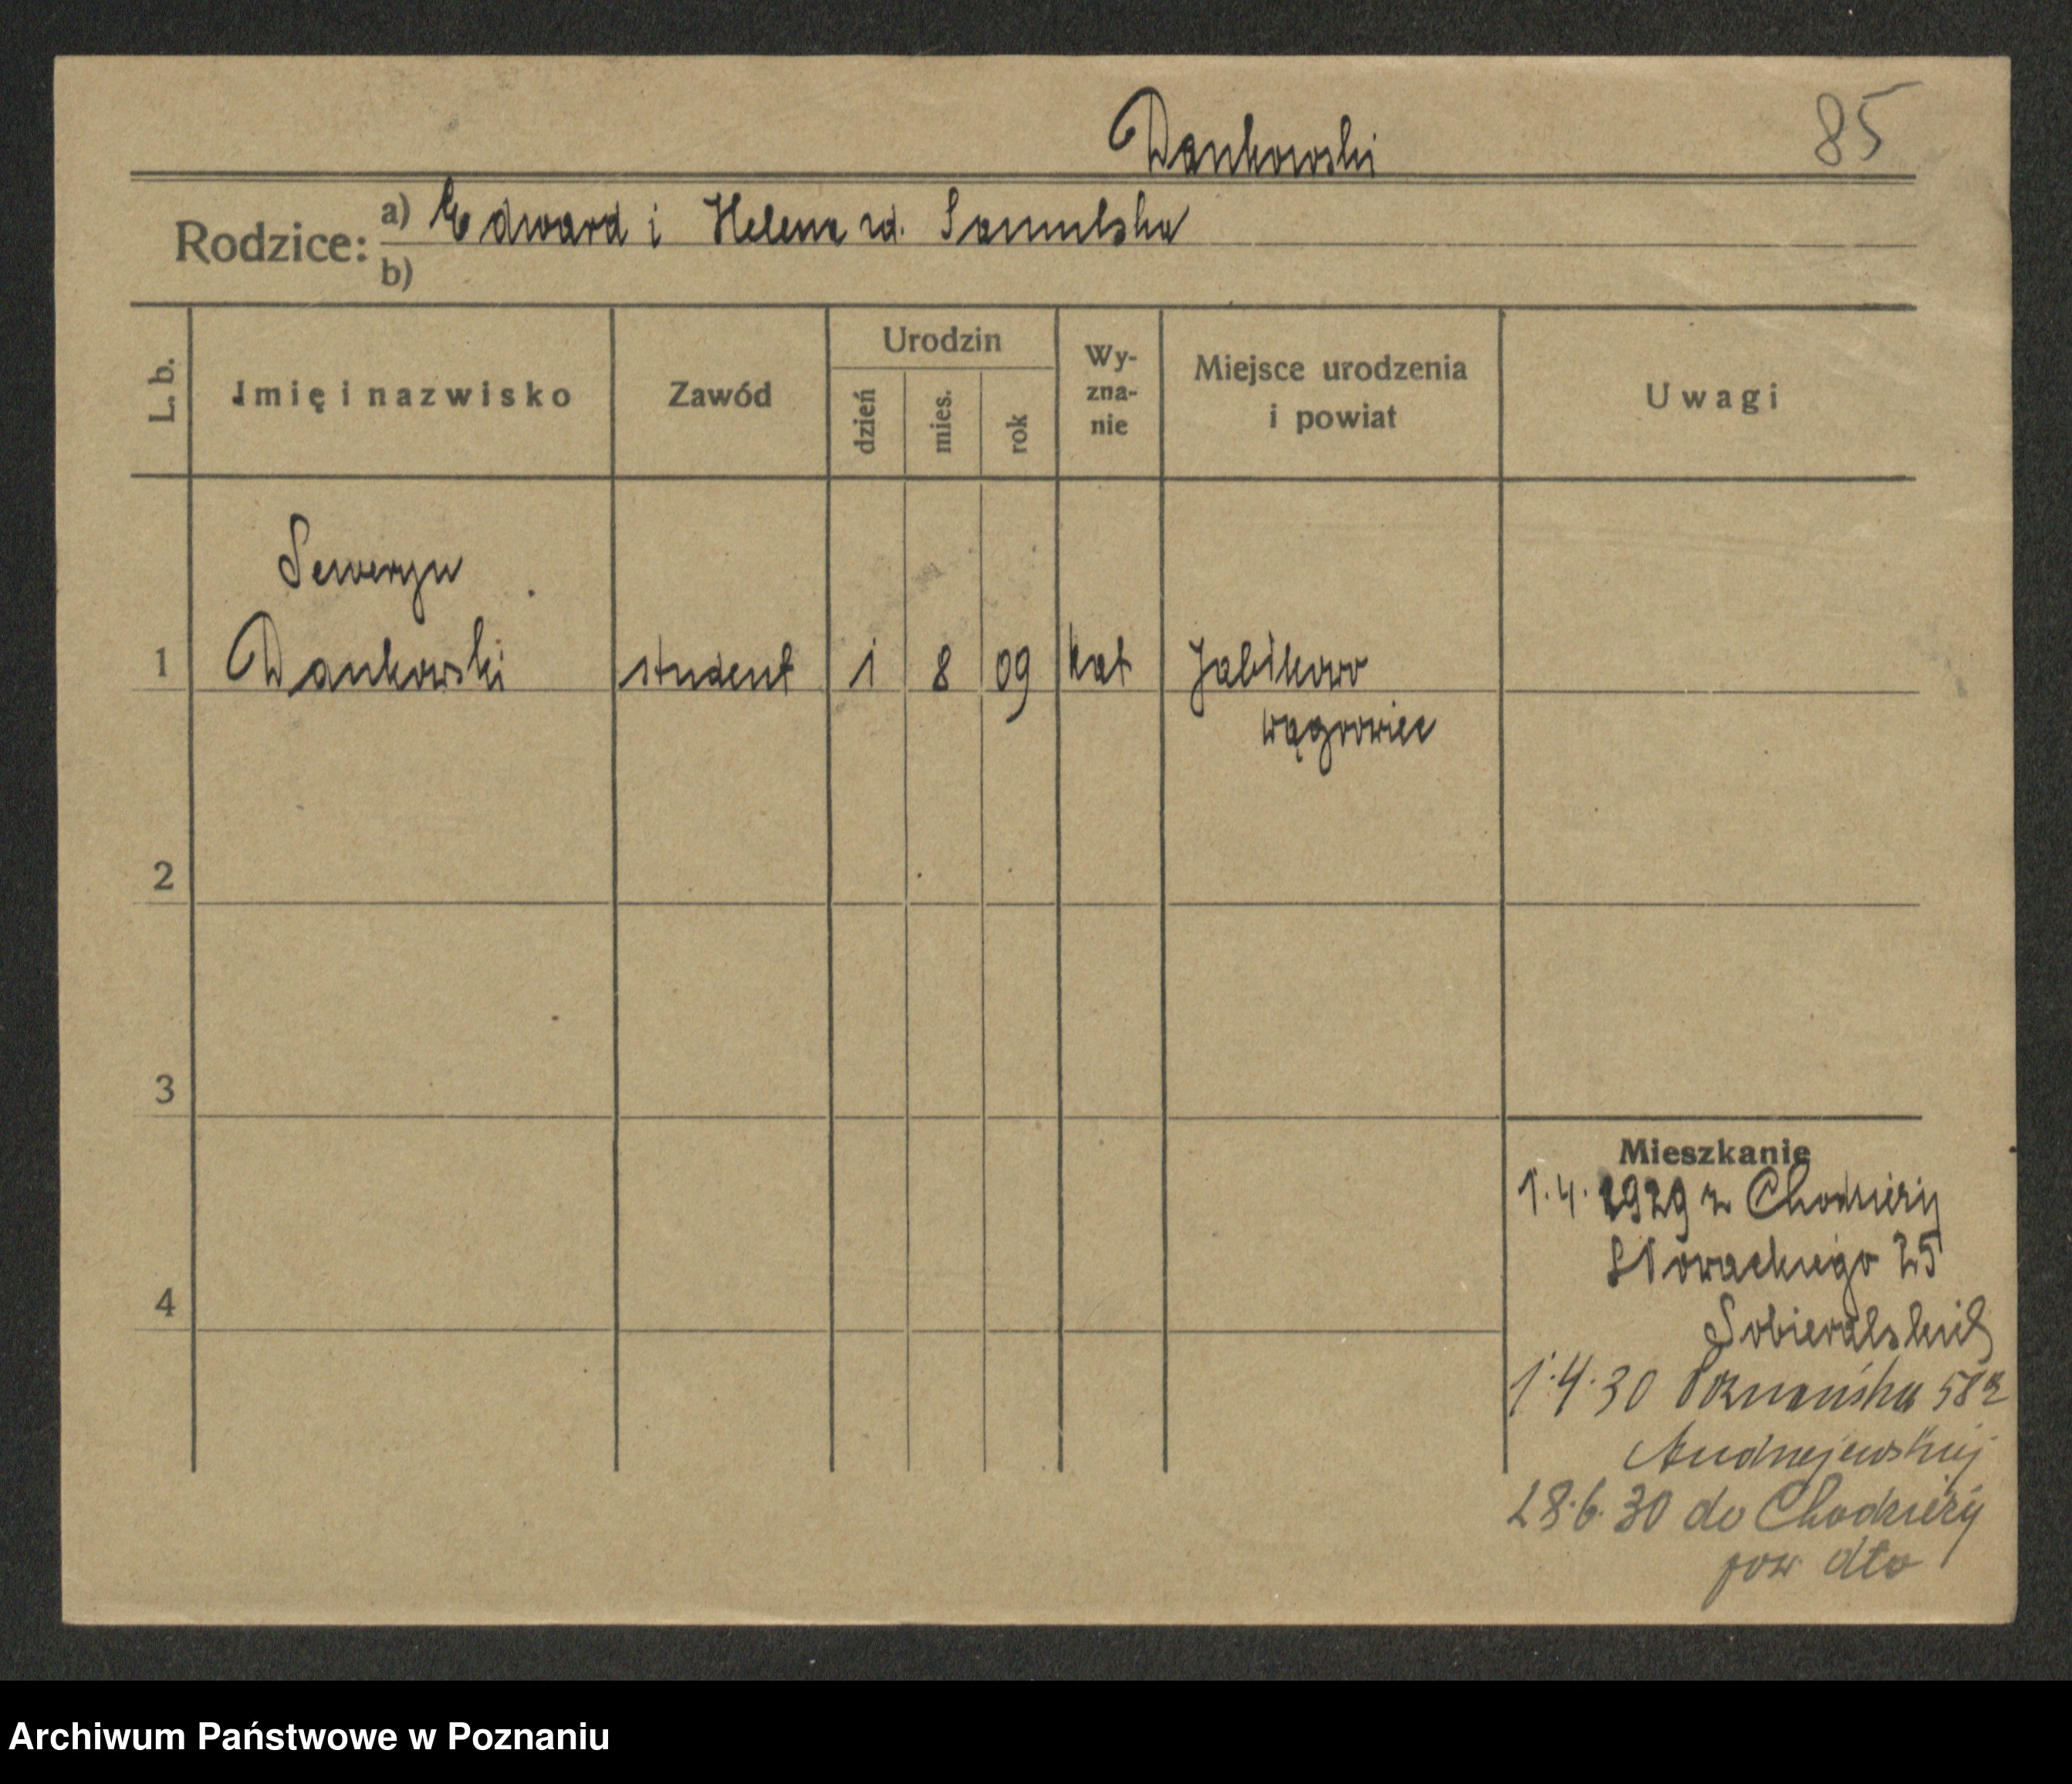 Dankowski
85
Rodzice: a) Edward i Helena rd. Samulska
b)
L. b. Jmię i nazwisko Zawód Urodzin dzień mies. rok Wy-zna-nie Miejsce urodzenia i powiat Uwagi
Seweryn
1 Dankowski student 1 8 09 kat Jabłkowo
wągrowiec
2
3
4
Mieszkanie
1.4.1929 z Chodzieży
Słowackiego 25
1.4.30 Poznańska 58
Andrzejewskiej
28.6.30 do Chodzieży
pow dto
Archiwum Państwowe w Poznaniu